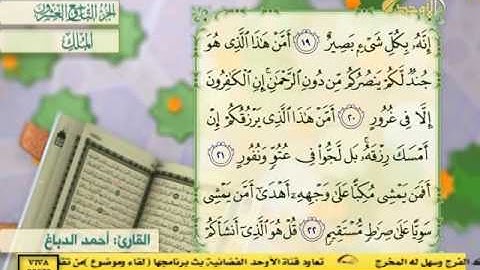 الجزء التاسع والعشرون
الملك
الأوحد
إِنَّهُۥ بِكُلِّ شَىْءٍۭ بَصِيرٌ ١٩ أَمَّنْ هَٰذَا ٱلَّذِى هُوَ
جُندٌ لَّكُمْ يَنصُرُكُم مِّن دُونِ ٱلرَّحْمَٰنِ ۚ إِنِ ٱلْكَٰفِرُونَ
إِلَّا فِى غُرُورٍ ٢٠ أَمَّنْ هَٰذَا ٱلَّذِى يَرْزُقُكُمْ إِنْ
أَمْسَكَ رِزْقَهُۥ ۚ بَل لَّجُّوا۟ فِى عُتُوٍّ وَنُفُورٍ ٢١
أَفَمَن يَمْشِى مُكِبًّا عَلَىٰ وَجْهِهِۦٓ أَهْدَىٰٓ أَمَّن يَمْشِى
سَوِيًّا عَلَىٰ صِرَٰطٍ مُّسْتَقِيمٍ ٢٢ قُلْ هُوَ ٱلَّذِىٓ أَنشَأَكُمْ
القارئ: أحمد الدباغ
VIVA
الفرج وسهل له المخرج تعاود قناة الأوحد الفضائية بث برنامجها (لقاء وموضوع)